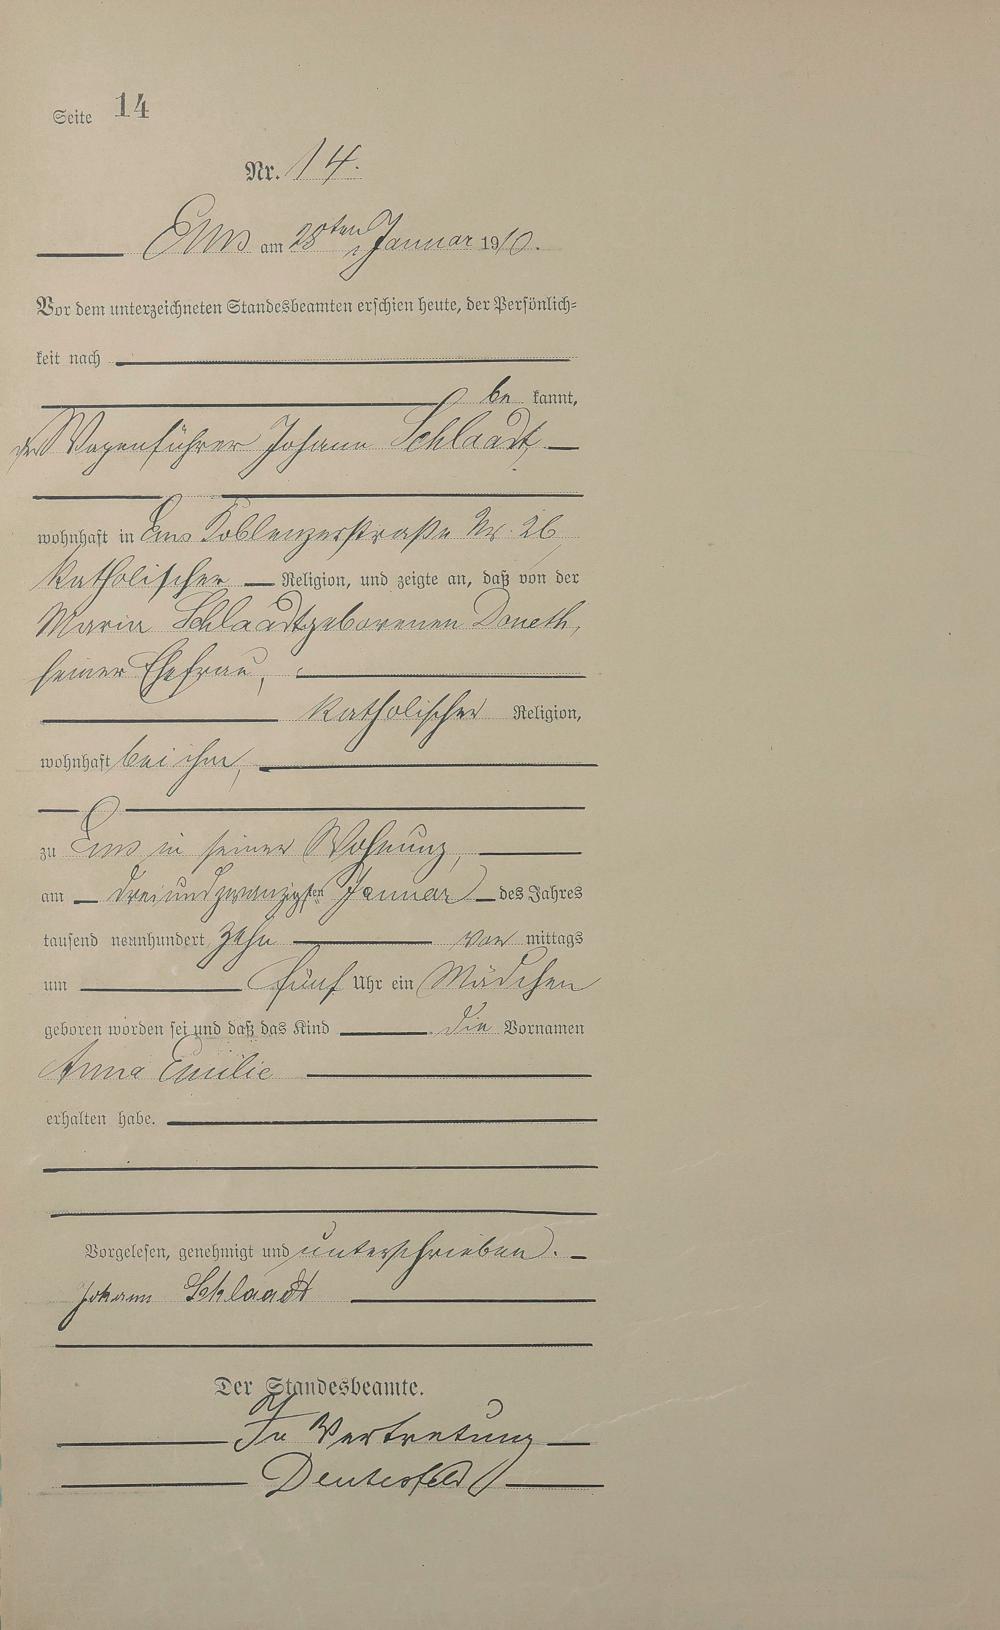 Seite 14
Nr. 14.
Ems am 28ten Januar 1910.
Vor dem unterzeichneten Standesbeamten erschien heute, der Persönlich-
keit nach
be kannt,
der Wagenführer Johann Schlaadt
wohnhaft in Ems Koblenzerstraße Nr. 26,
katholischer Religion, und zeigte an, daß von der
Maria Schlaadt geborenen Doneth,
seiner Ehefrau,
katholischer Religion,
wohnhaft bei ihm,
zu Ems in seiner Wohnung,
am dreiundzwanzigsten Januar des Jahres
tausend neunhundert zehn vor mittags
um fünf Uhr ein Mädchen
geboren worden sei und daß das Kind die Vornamen
Anna Emilie
erhalten habe.
Vorgelesen, genehmigt und unterschrieben.
Johann Schlaadt
Der Standesbeamte.
In Vertretung